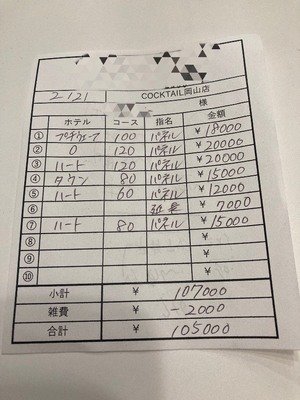 2/21 COCKTAIL岡山店
様
ホテル コース 指名 金額
① プチウェーブ 100 パネル ¥18000
② O 120 パネル ¥20000
③ ハート 120 パネル ¥20000
④ タウン 80 パネル ¥15000
⑤ ハート 60 パネル ¥12000
⑥ 延長 ¥7000
⑦ ハート 80 パネル ¥15000
⑧ ¥
⑨ ¥
⑩ ¥
小計 ¥ 107000
雑費 ¥ -2000
合計 ¥ 105000